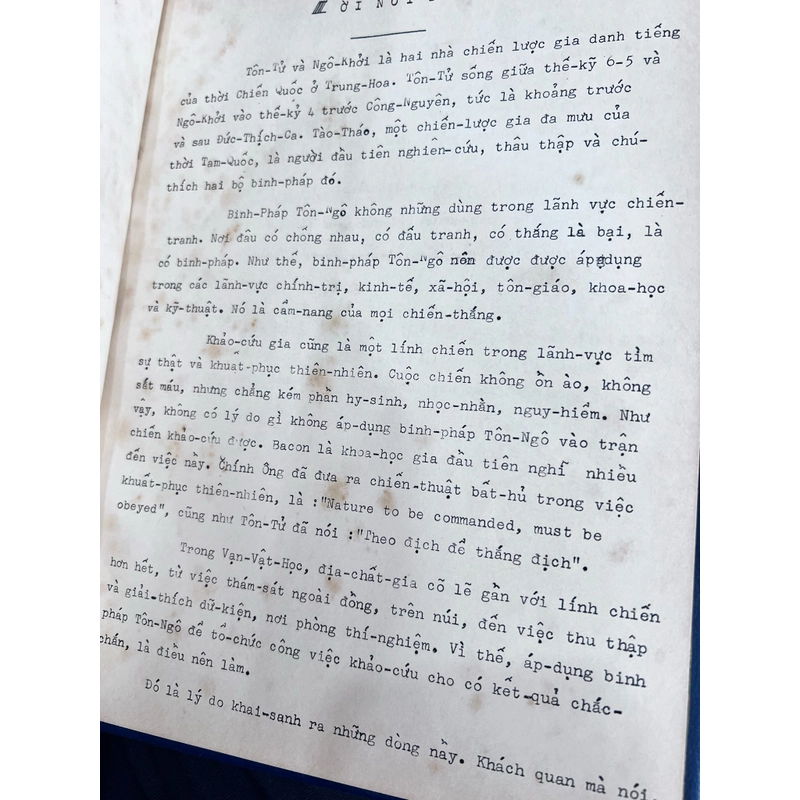 ỜI NÓI
Tôn-Tử và Ngô-Khởi là hai nhà chiến lược gia danh tiếng
của thời Chiến Quốc ở Trung-Hoa. Tôn-Tử sống giữa thế-kỹ 6-5 và
Ngô-Khởi vào thế-kỷ 4 trước Công-Nguyên, tức là khoảng trước
và sau Đức-Thích-Ca. Tào-Tháo, một chiến-lược gia đa mưu của
thời Tam-Quốc, là người đầu tiên nghien-cứu, thâu thập và chú-
thích hai bộ binh-pháp đó.
Binh-Pháp Tôn-Ngô không những dùng trong lãnh vực chiến-
tranh. Nơi đâu có chống nhau, có đấu tranh, có thắng là bại, là
có binh-pháp. Như thế, binh-pháp Tôn-Ngô nên được được áp dụng
trong các lãnh-vực chính-trị, kinh-tế, xã-hội, tôn-giáo, khoa-học
và kỹ-thuật. Nó là cẩm-nang của mọi chiến-thắng.
Khảo-cứu gia cũng là một lính chiến trong lãnh-vực tìm
sự thật và khuất-phục thiên-nhiên. Cuộc chiến không ồn ào, không
sất máu, nhưng chẳng kém phần hy-sinh, nhọc-nhằn, nguy-hiểm. Như
vậy, không có lý do gì không áp-dụng binh-pháp Tôn-Ngô vào trận
chiến khảo-cứu được. Bacon là khoa-học gia đầu tiên nghĩ nhiều
đến việc này. Chính Ông đã đưa ra chiến-thuật bất-hủ trong việc
khuất-phục thiên-nhiên, là :"Nature to be commanded, must be
obeyed", cũng như Tôn-Tử đã nói :"Theo địch để thắng địch".
Trong Vạn-Vật-Học, địa-chất-gia cõ lẽ gần với lính chiến
hơn hết, từ việc thám-sát ngoài đồng, trên núi, đến việc thu thập
và giải-thích dữ-kiện, nơi phòng thí-nghiệm. Vì thế, áp-dụng binh
pháp Tôn-Ngô để tổ-chức công việc khảo-cứu cho có kết-quả chắc-
chắn, là điều nên làm.
Đó là lý do khai-sanh ra những dòng nầy. Khách quan mà nói,